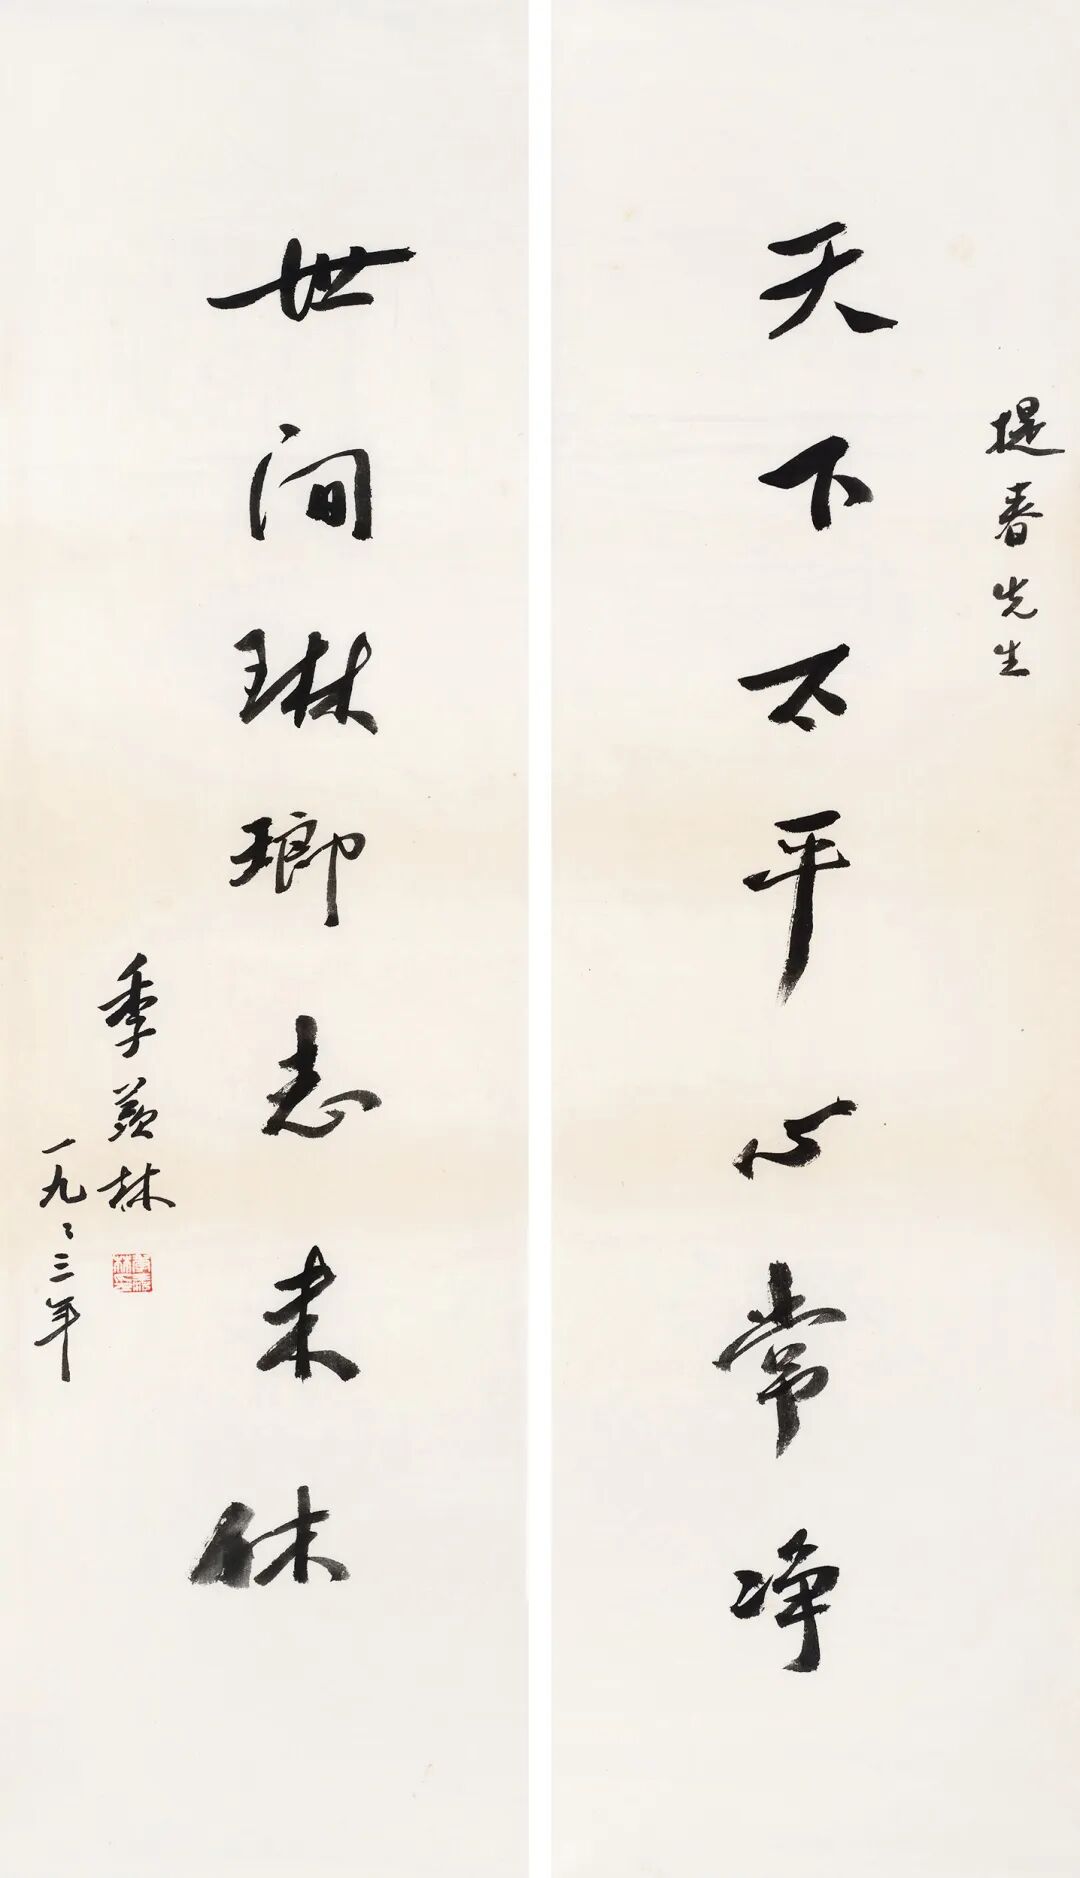 提春先生
天下太平心常净
世间琳瑯志未休
季羡林
一九九三年